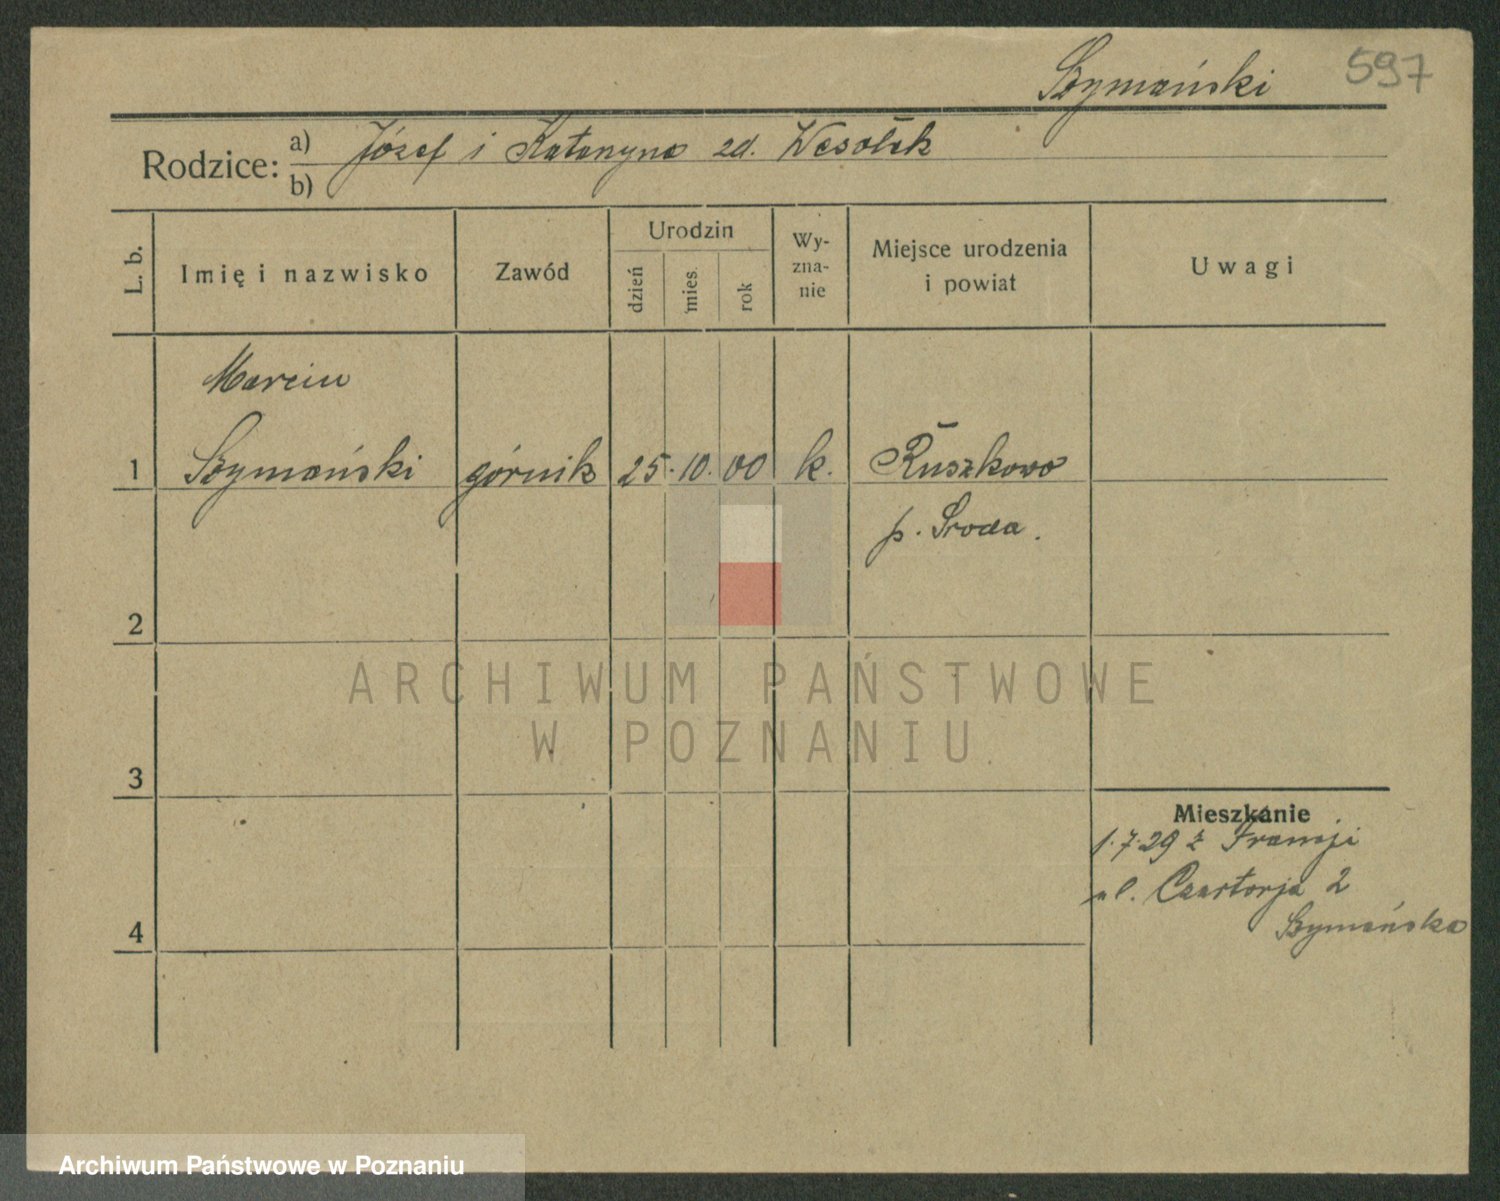 Szymański 597
Rodzice: a) Józef i Katarzyna zd. Wesołek
b)
L. b. Imię i nazwisko Zawód Urodzin dzień mies. rok Wy-zna-nie Miejsce urodzenia i powiat Uwagi
Marcin
1 Szymański górnik 25. 10. 00 k. Ruszkowo
p. Środa.
2
ARCHIWUM PAŃSTWOWE
W POZNANIU
3
Mieszkanie
1.7.29 z Francji
ul. Czartorja 2
4 Szymańska
Archiwum Państwowe w Poznaniu